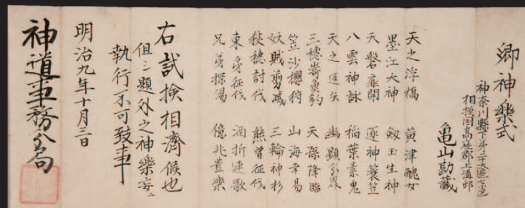 御神楽式
神奈川縣
相模国高座郡上溝邨
亀山勘蔵
天之浮橋 黄津醜女
墨江大神 劔玉生神
天磐座開 逐神簑笠
八雲神詠 稲葉素兎
天之返矢 幽顕分界
三穂崎魚釣 天孫降臨
笠沙櫻狩 山海幸易
妖賊剪滅 三輪神杉
残穂討伐 熊曽征伐
東夷征伐 酒折連歌
兄弟探湯
右試検相濟候也
但シ題外之神樂妄ニ
執行不可致事
明治九年十月三日
神道事務分局